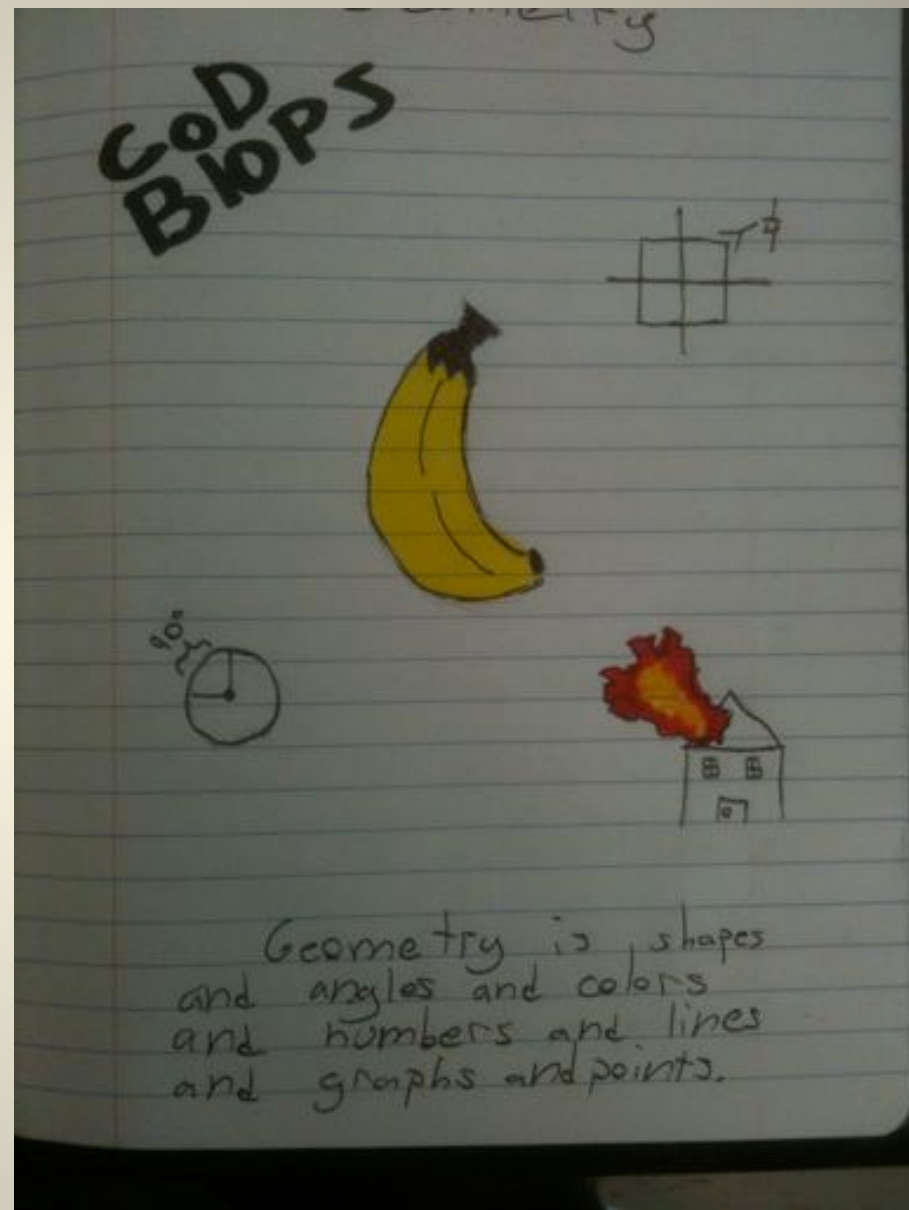 Geometry
CoD
Blops
90°
Geometry is shapes
and angles and colors
and numbers and lines
and graphs and points.